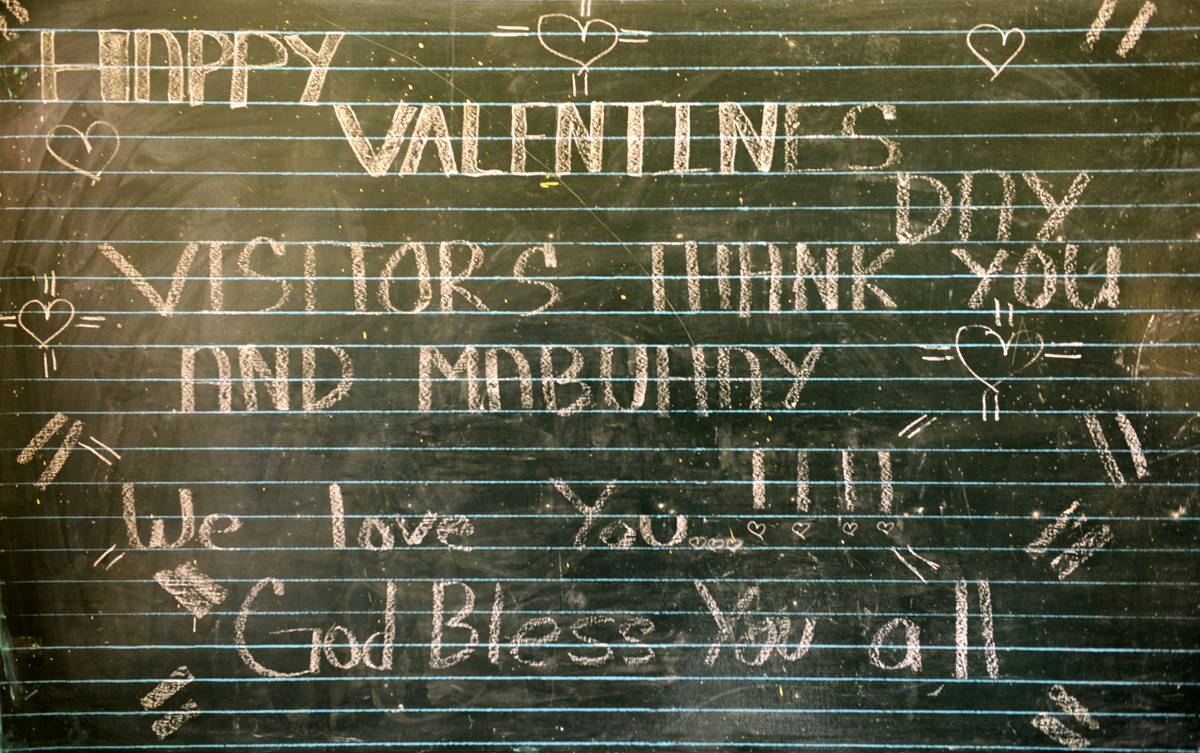 HAPPY
VALENTINES
DAY
VISITORS THANK YOU
AND MABUHAY
We love You...!!!!
God Bless You all